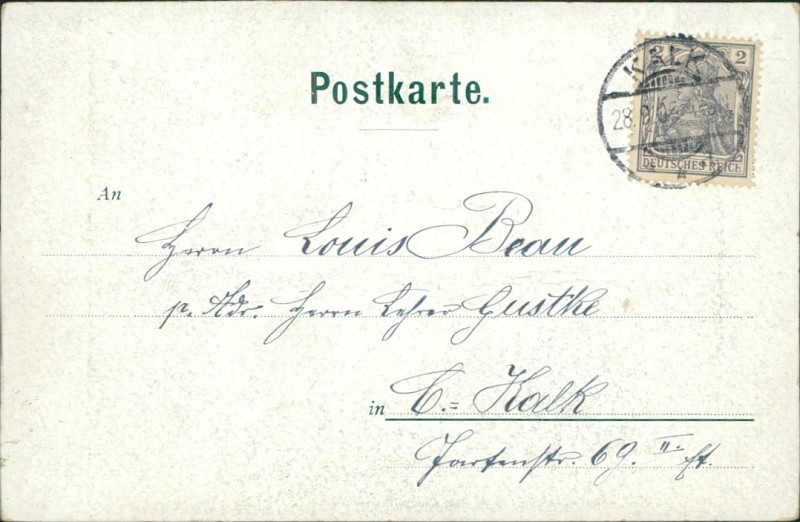 Postkarte.
2
KALK
28.8.
DEUTSCHES REICH
An
Herrn Louis Beau
p. Adr. Herrn Lehrer Gustke
in C.= Kalk
69. II.